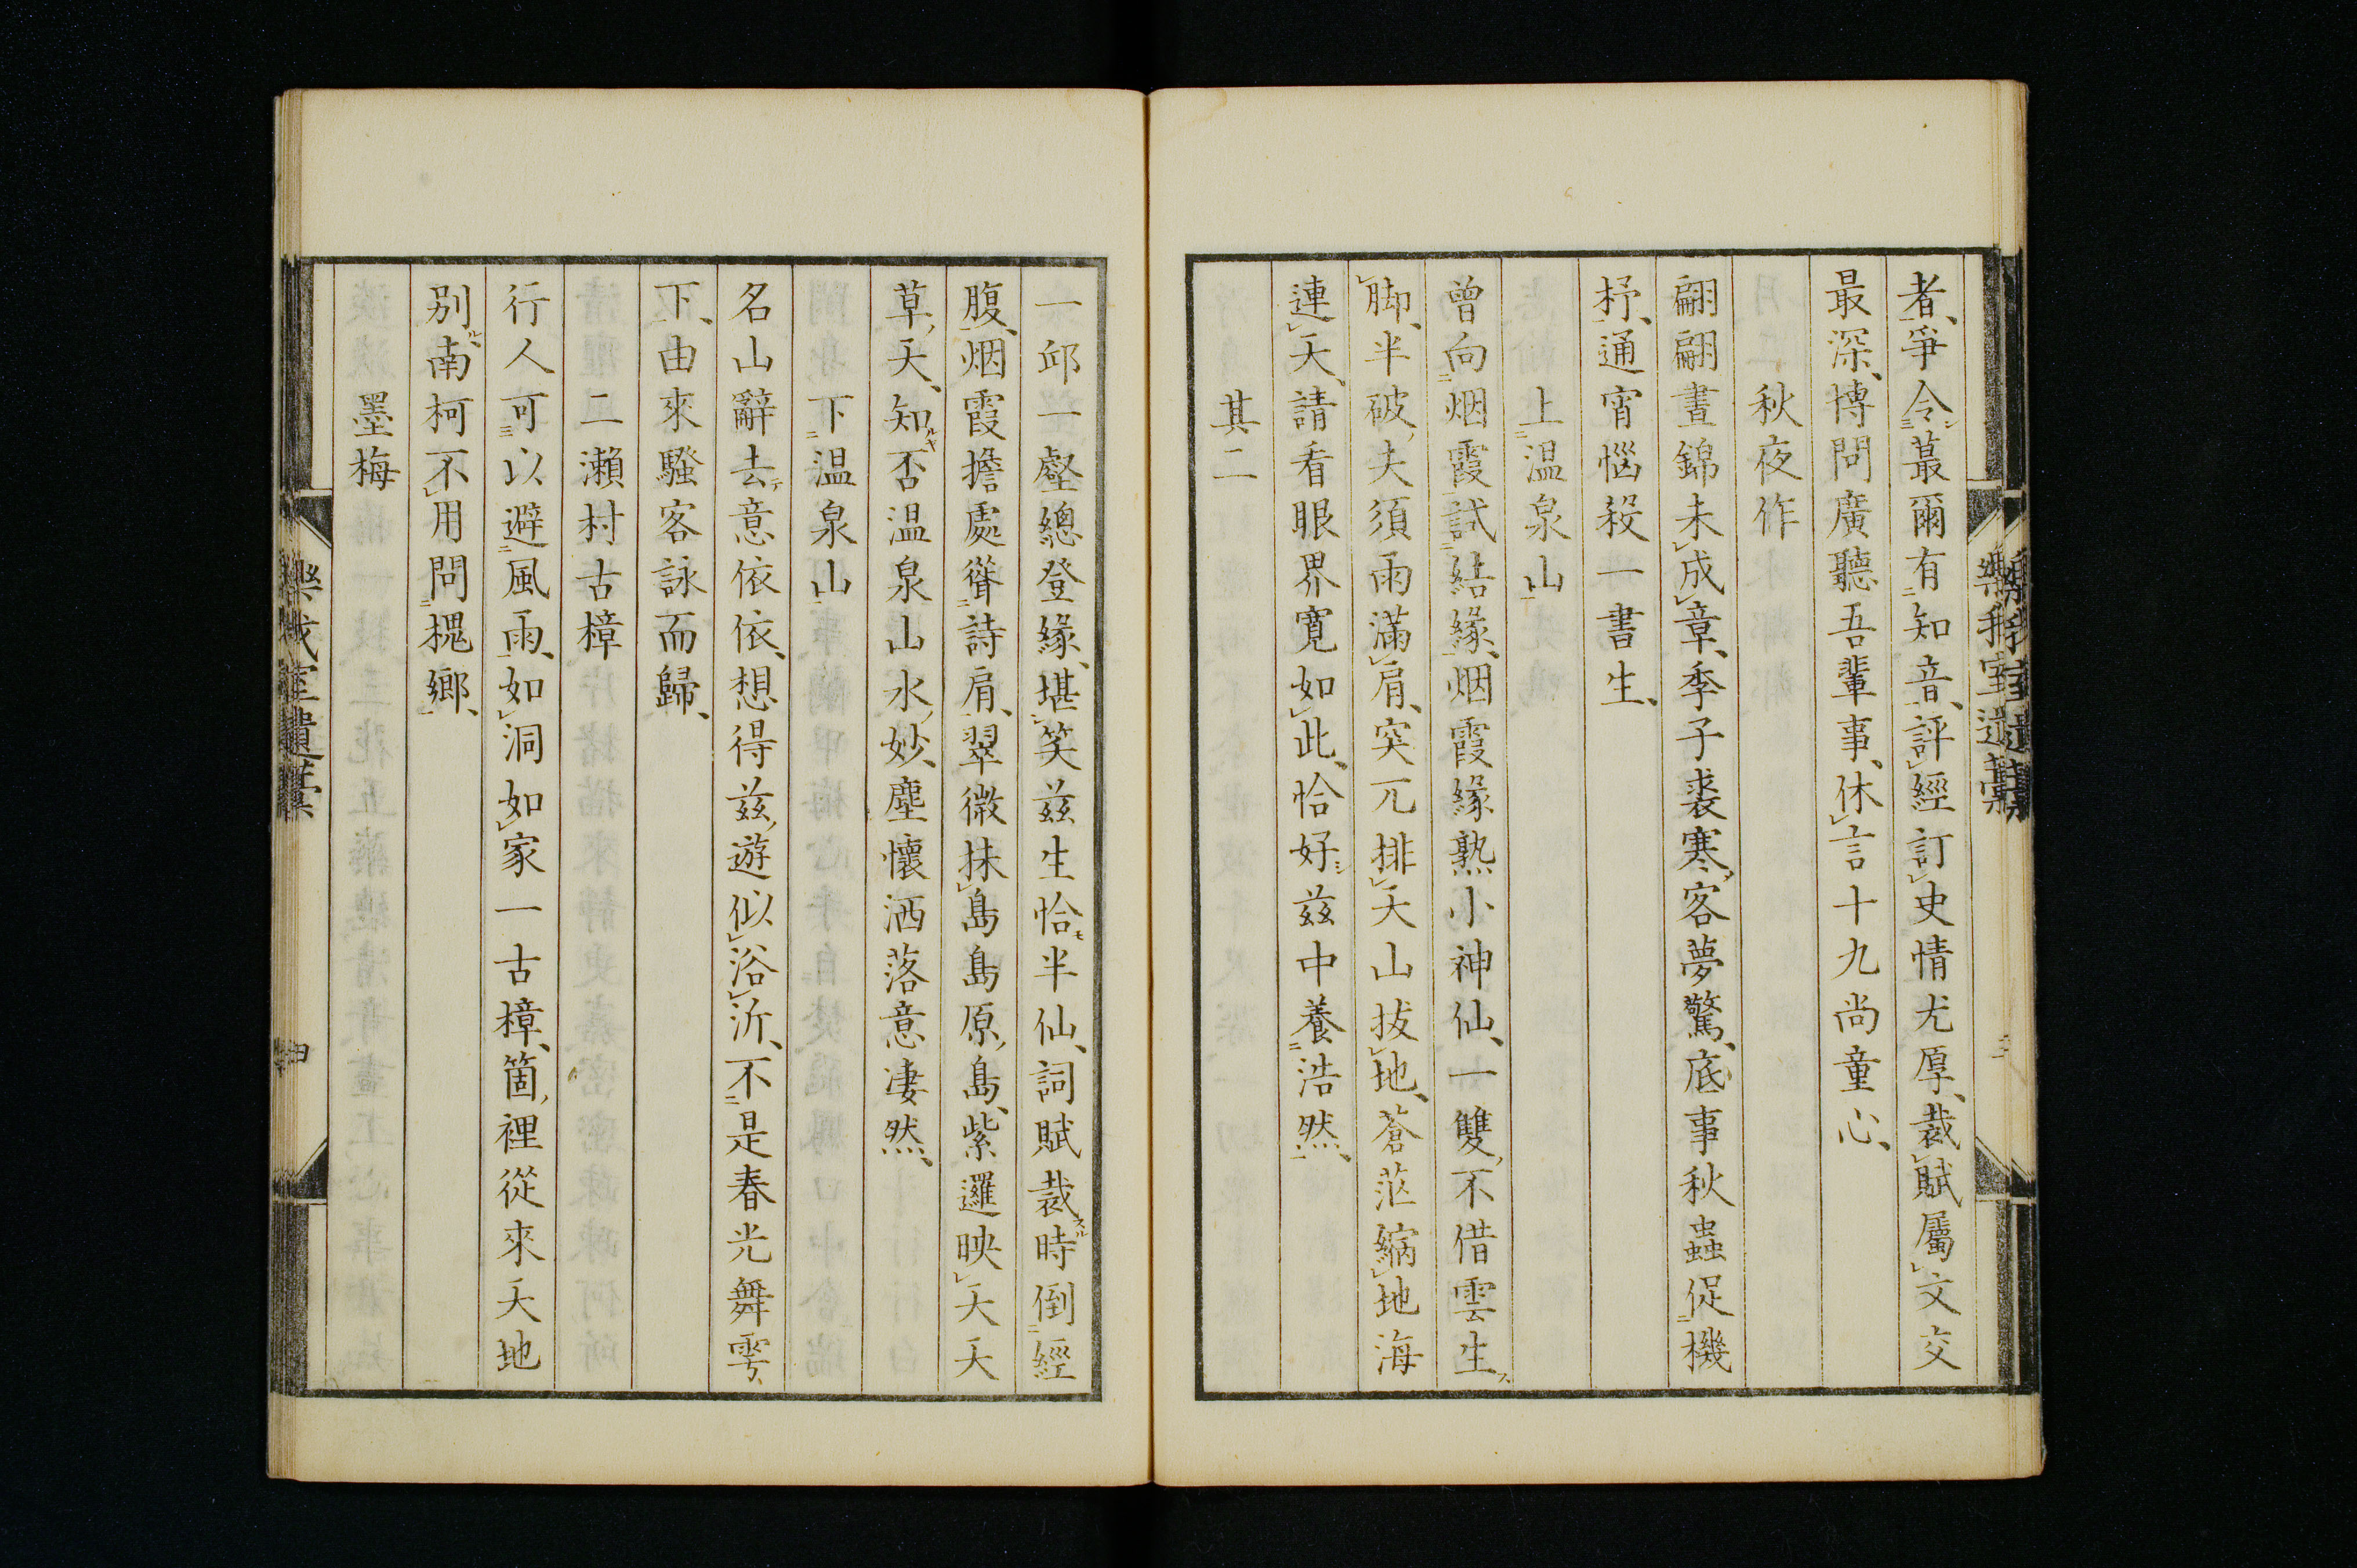 者、爭令蕞爾有知音、評經訂史情尤厚、裁賦屬文交
最深、博問廣聽吾輩事、休言十九尚童心、
秋夜作
翩翩晝錦未成章、季子裘寒、客夢驚、底事秋蟲促機
杼、通宵惱殺一書生、
上温泉山
曾向烟霞試結緣、烟霞緣熟小神仙、一雙、不借雲生
脚、半破、夫須雨滿肩、突兀排天山拔地、蒼茫縮地海
連天、請看眼界寛如此、恰好茲中養浩然、
其二
一邱一壑總登緣、堪笑茲生恰半仙、詞賦裁時倒經
腹、烟霞擔處聳詩肩、翠微抹島島原、島、紫邏映天天
草、天、知否温泉山水、妙、塵懷洒落意凄然、
下温泉山
名山辭去意依依、想得茲、遊似浴沂、不是春光舞雩、
下、由來騷客詠而歸、
二瀬村古樟
行人可以避風雨、如洞如家一古樟、箇、裡從來天地
別南柯不用問槐鄉、
墨梅